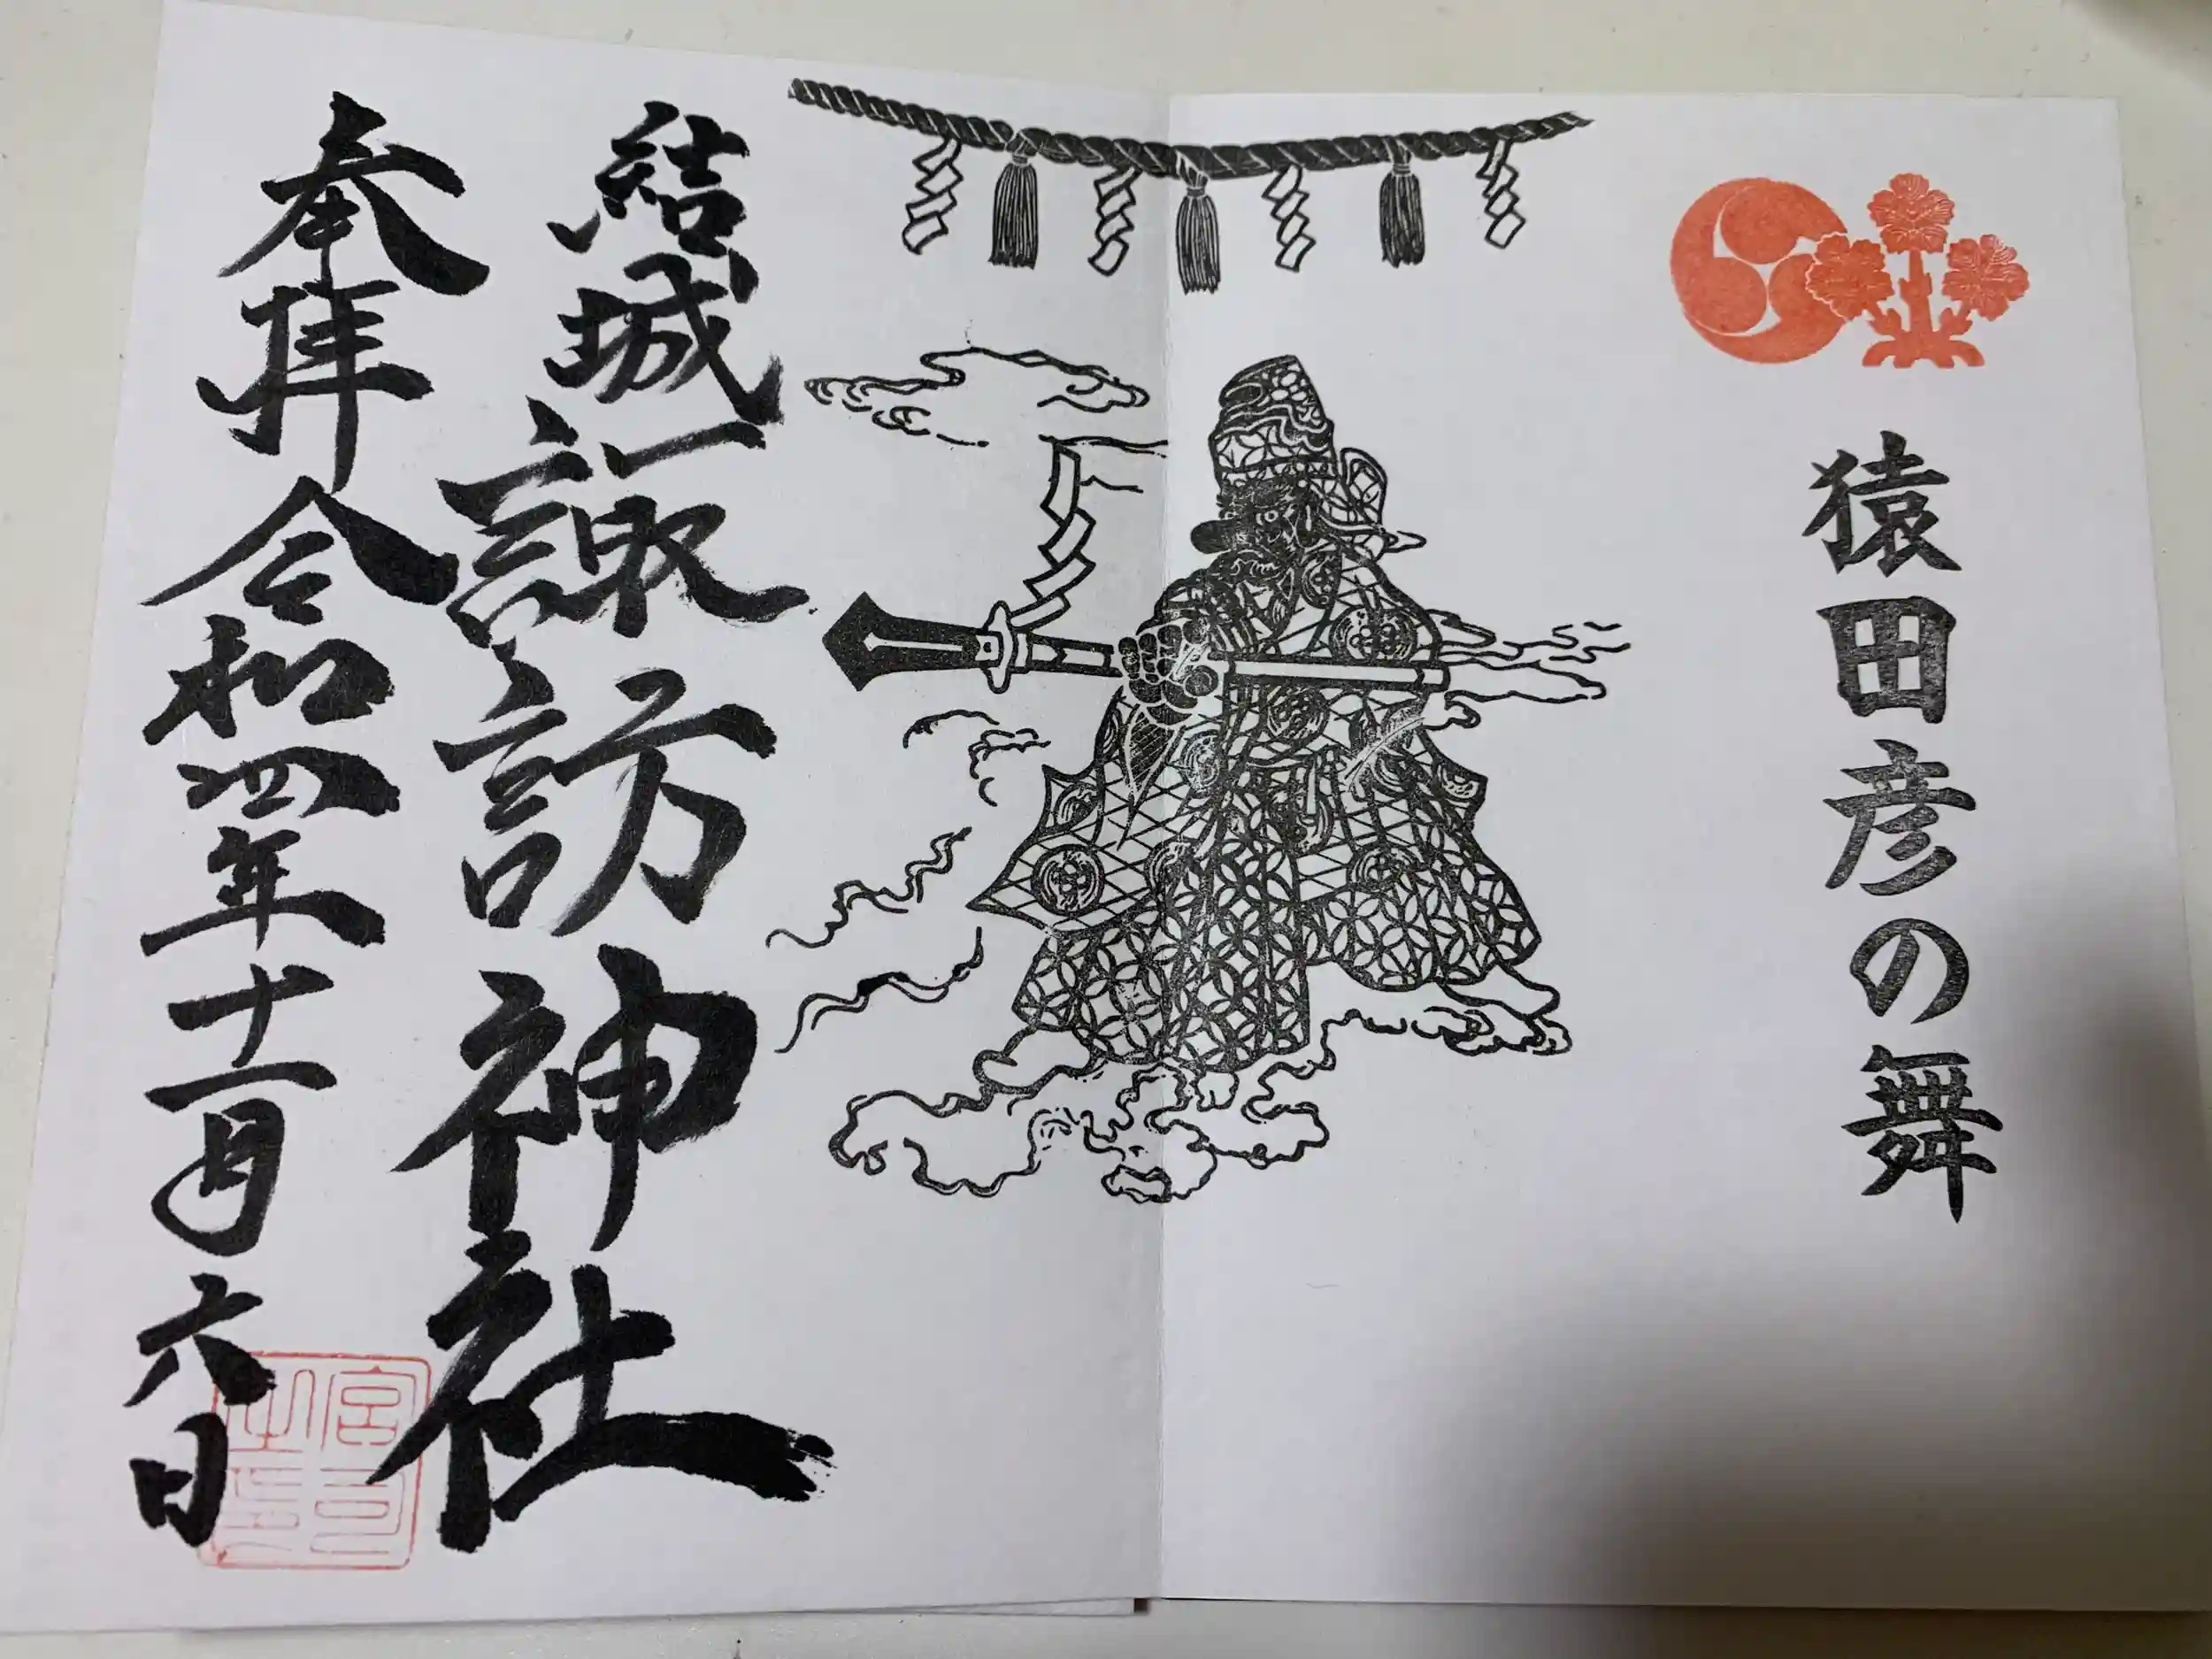 猿田彦の舞
結城諏訪神社
奉拝 令和四年十一月六日
宮司之印